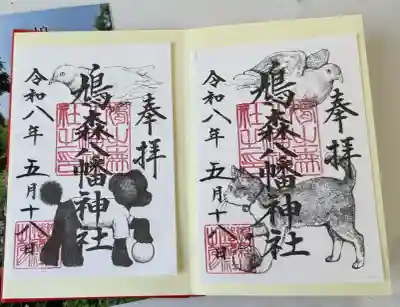 奉拝
鳩森八幡神社
令和八年 五月十八日
奉拝
鳩森八幡神社
令和八年 五月十八日